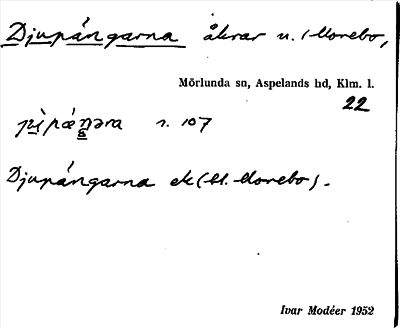 Djupángarna åkrar u. (Morebo,
Mörlunda sn, Aspelands hd, Klm. l.
22
r. 107
Djupángarna ek (St. Morebo).
Ivar Modéer 1952